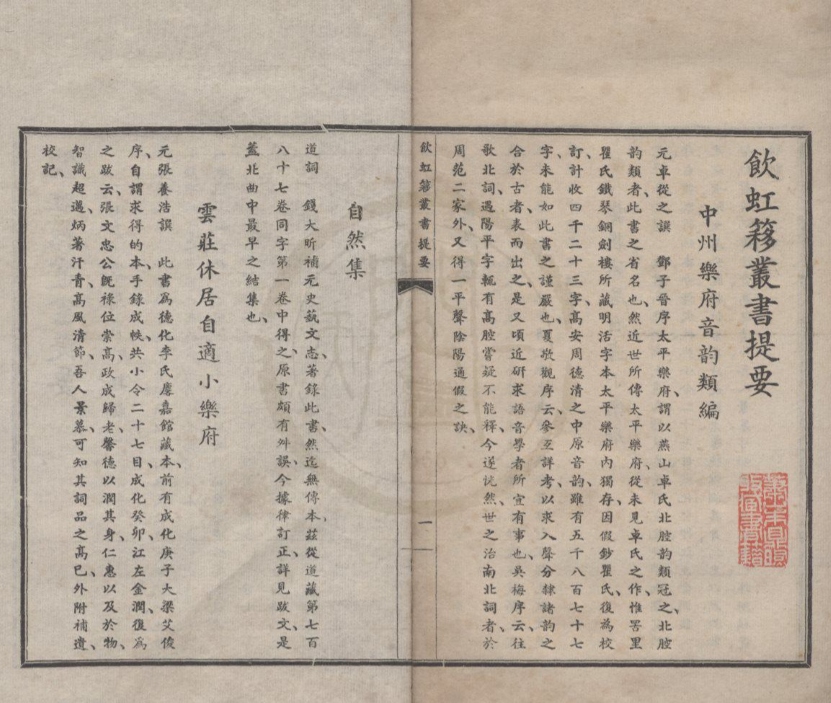 飲虹簃叢書提要
中州樂府音韵類編
元卓從之譔　鄧子晉序太平樂府、謂以燕山卓氏北腔韵類冠之、北腔
韵類者、此書之省名也、然近世所傳太平樂府、從未見卓氏之作、惟罟里
瞿氏鐵琴銅劍樓所藏明活字本太平樂府內獨存、因假鈔瞿氏、復為校
訂、計收四千二十三字、高安周德清之中原音韵、雖有五千八百七十七
字、未能如此書之謹嚴也、夏敬觀序云、參互詳考、以求入聲分隸諸韵之
合於古者、表而出之、是又頃近研求語音學者所宜有事也、吳梅序云、往
歌北詞、遇陽平字、輒有高腔、嘗疑不能釋、今遂恍然、世之治南北詞者、於
周范二家外、又得一平聲陰陽通假之訣、
飲虹簃叢書提要
一
自然集
道詞　錢大昕補元史蓺文志著錄此書、然迄無傳本、茲從道藏第七百
八十七卷同字第一卷中得之、原書頗有舛誤、今據律訂正、詳見跋文、是
蓋北曲中最早之結集也、
雲莊休居自適小樂府
元張養浩譔　此書為德化李氏廬嘉館藏本、前有成化庚子大梁艾俊
序、自謂求得的本、手錄成帙、共小令二十七目、成化癸卯、江左金潤復為
之跋云、張文忠公既祿位崇高、政成歸老、馨德以潤其身、仁惠以及於物、
智識超邁、炳著汗青、高風清節、吾人景慕、可知其詞品之高已、外附補遺、
校記、